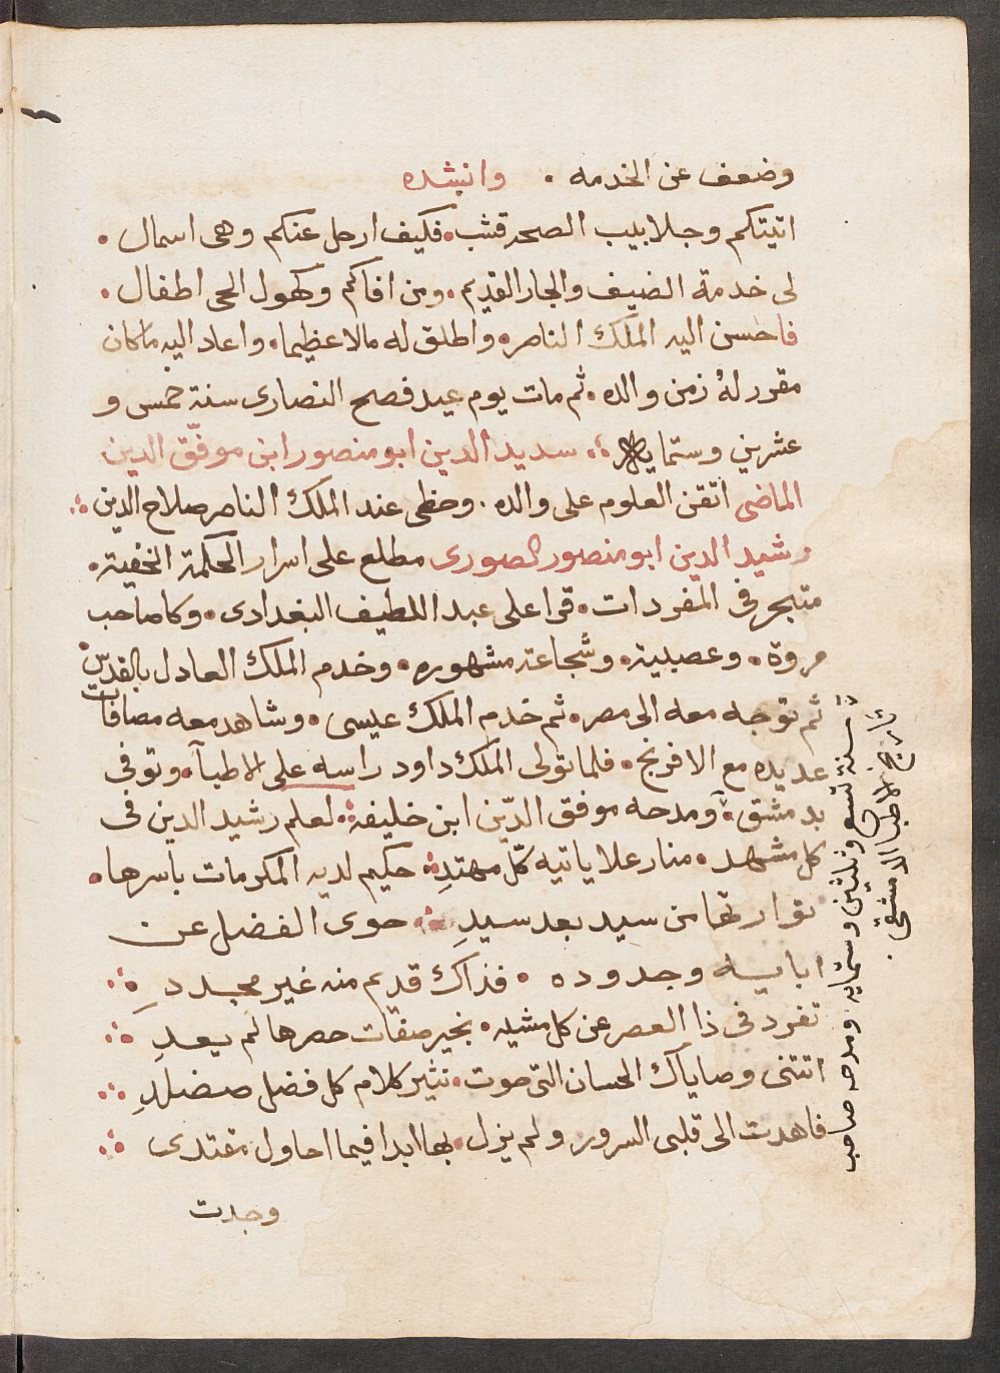 وضعف عن الخدمه . وانشده
اتيتكم وجلابيب الصحر قشب . فكيف ارحل عنكم وهى اسمال .
لى خدمة الضيف والجار القديم . ومن افاكم وكهول الحى اطفال .
فاحسن اليه الملك الناصر . واطلق له مالا عظيما . واعاد اليه ماكان
مقرر لهُ زمن والده . ثم مات يوم عيد فصح النصارى سنة خمس و
عشرين وستمايه سديد الدين ابو منصور ابن موفّق الدين
الماضى اتقن العلوم على والده . وحظى عند الملك الناصر صلاح الدين
رشيد الدين ابو منصور الصورى مطلع على اسرار الحكمة الخفية .
متبحر فى المفردات . قرا على عبد اللطيف البغدادى . وكا صاحب
مروة . وعصبية . وشجاعة مشهوره . وخدم الملك العادل بالقدس
ثم توجه معه الى مصر . ثم خدم الملك عيسى . وشاهد معه مصافات
عديده مع الافرنج . فلما تولى الملك داود راسه على الاطبآ . وتوفى
بدمشق ومدحه موفق الدّين ابن خليفة لعلم رشيد الدين فى
كل مشهد . منار علا ياتيه كلّ مهتدِ حكيم لديه المكرمات باسرها .
توارثها من سيد بعد سيدِ حوى الفضل عن
ابايه وجدوده . فذاك قديم منه غير مجددِ
تفرد فى ذا العصر عن كل مشبه . بخير صفات حصرها لم يعدِ
اتتنى وصاياك الحسان التى حوت . نثير كلام كل فضل منضدِ
فاهدت الى قلبى السرور ولم يزل . بها ابدا فيما احاول مقتدى
وجدت
سنة تسع وثلثين وستمايه ومدحه صاحب
تاريخ الاطبا الدمشقى .